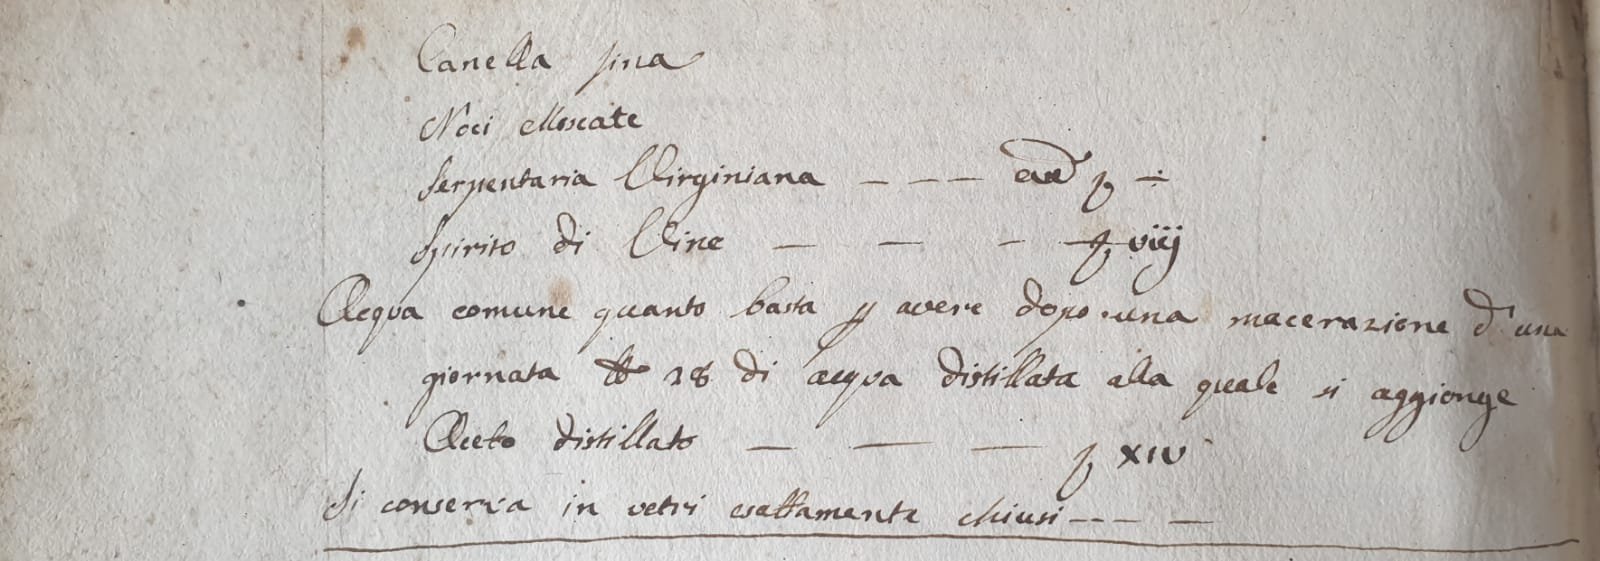 Canella fina
Noci Moscate
Serpentaria Virginiana — — — ana ℥ ÷
Spirito di Vino — — — ℥ viij
Acqua comune quanto basta ꝑ avere dopo una macerazione d'una
giornata ℔ 28 di acqua distillata alla quale si aggionge
Aceto distillato — — — ℥ XIV
Si conserva in vetri esattamente chiusi - - - —